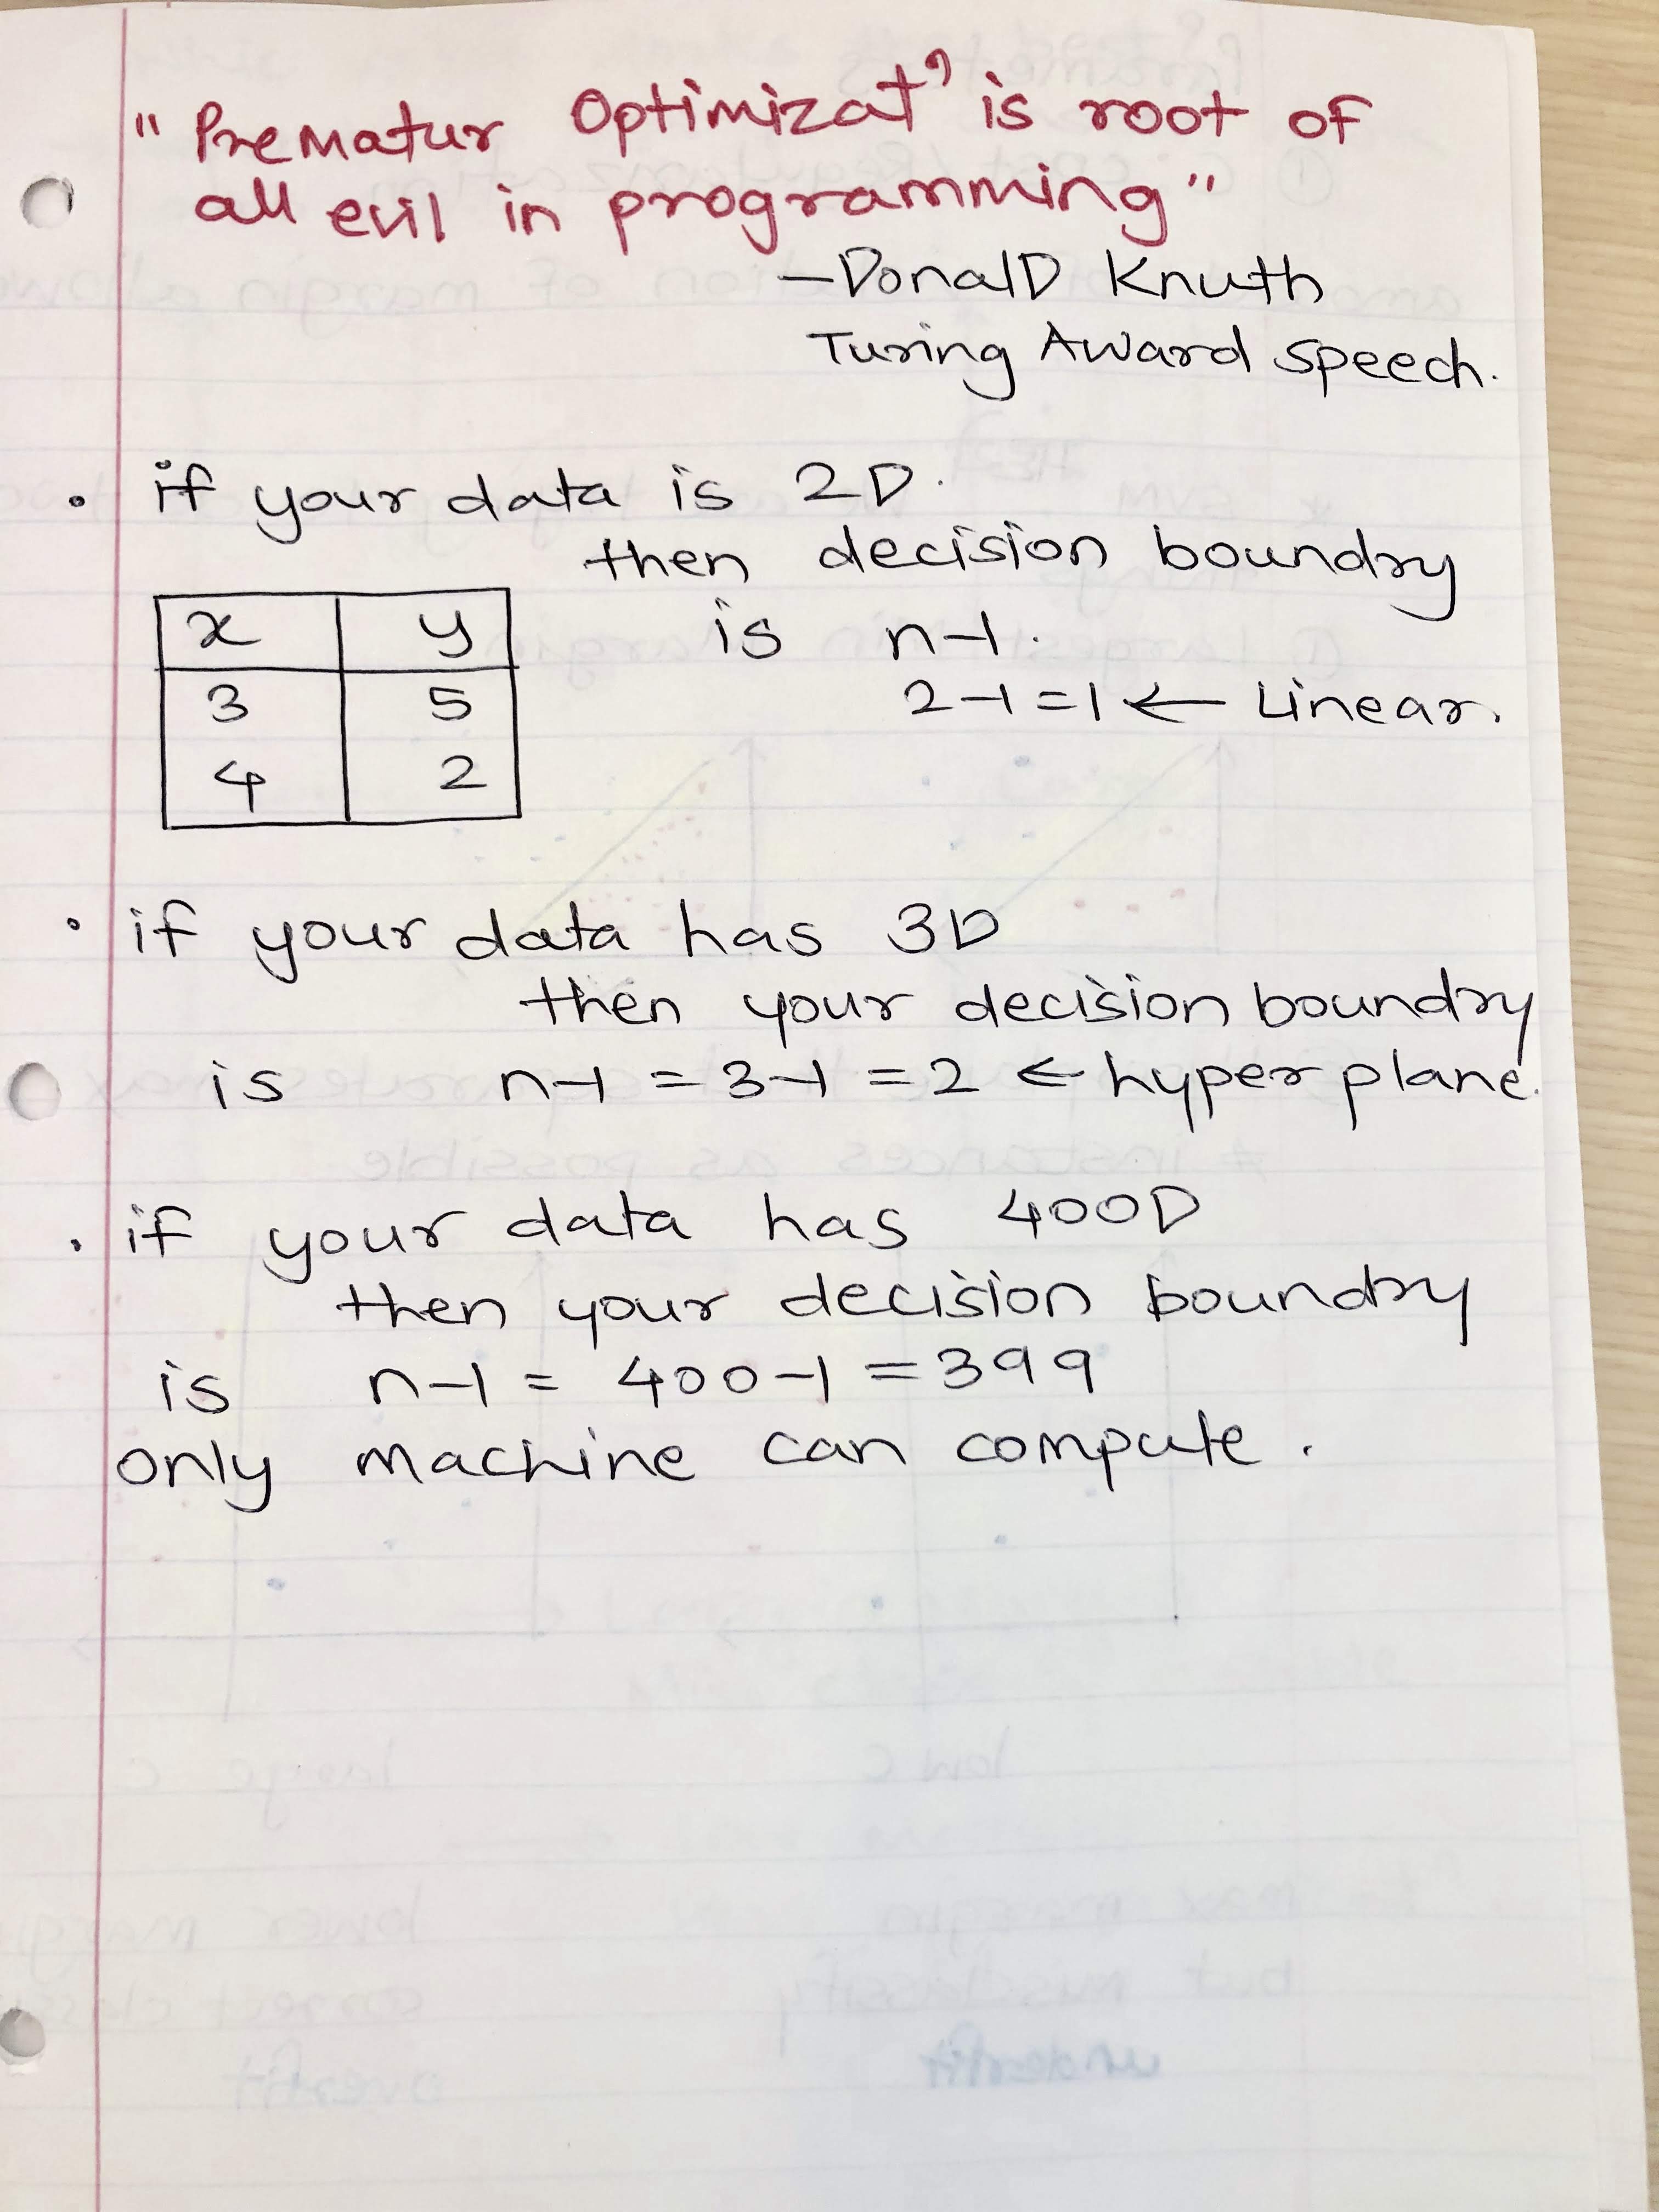 "Prematur Optimizat' is root of
all evil in programming"
—Donald Knuth
Turing Award speech.
• if your data is 2D.
then decision boundry
x y
is n-1.
3 5
2-1=1 ← Linear.
4 2
• if your data has 3D
then your decision boundry
is n-1 = 3-1 = 2 ← hyperplane.
• if your data has 400D
then your decision boundry
is n-1 = 400-1 = 399
only machine can compute.